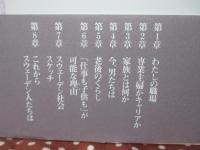 第1章 わたしの職場
第2章 専業主婦かキャリアか
第3章 家族とは何か
第4章 今、男たちは
第5章 老後のくらし
第6章 「仕事も子供も」が
可能な理由
第7章 スウェーデン社会
スケッチ
第8章 これから
スウェーデン人たちは